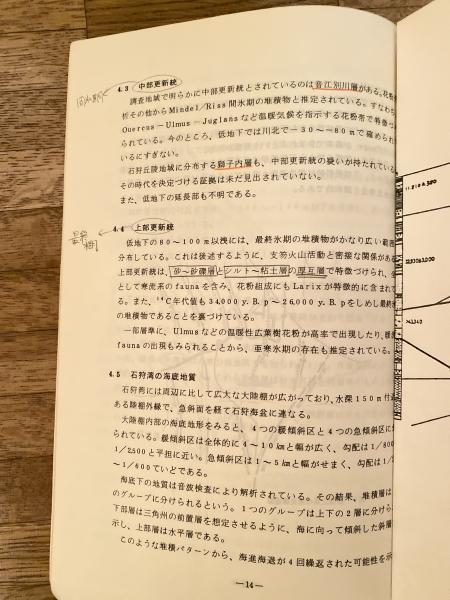 4.3 中部更新統
調査地域で明らかに中部更新統とされているのは音江別川層がある。花粉
析その他からMindel/Riss間氷期の堆積物と推定されている。すなわち
Quercus-Ulmus-Juglansなど温暖気候を指示する花粉帯で特徴づ
られている。今のところ、低地下では川北で-30~-80mで確められ
いるにすぎない。
石狩丘陵地域に分布する獅子内層も、中部更新統の疑いが持たれている
その時代を決定づける証拠は未だ見出されていない。
また、低地下の延長部も不明である。
4.4 上部更新統
低地下の80~100m以浅には、最終氷期の堆積物がかなり広い範囲
分布している。これは後述するように、支笏火山活動と密接な関係がある
上部更新統は、砂~砂礫層とシルト~粘土層の厚互層で特徴づけられ、
として寒流系のfaunaを含み、花粉組成にもLarixが特徴的に含まれ
る。また、14C年代値も34,000y.B.P~26,000y.B.Pをしめし最終
の堆積物であることを裏づけている。
一部層準に、Ulmusなどの温暖性広葉樹花粉が高率で出現したり、暖
faunaの出現もみられることから、亜寒氷期の存在も推定されている。
4.5 石狩湾の海底地質
石狩湾には周辺に比して広大な大陸棚が広がっており、水深150m付
ある陸棚外縁で、急斜面を経て石狩海盆に連なる。
大陸棚内部の海底地形をみると、4つの緩傾斜区と4つの急傾斜区に
られている。緩傾斜区は全体的に4~10kmと幅が広く、勾配は1/800
1/2,500と平担に近い。急傾斜区は1~5kmと幅がせまく、勾配は1/2
~1/600ていどである。
海底下の地質は音波検査により解析されている。その結果、堆積層は
のグループに分けられるという。1つのグループは上下の2層に分けら
下部層は三角州の前置層を想定させるように、海に向って傾斜した斜層
示し、上部層は水平層である。
このような堆積パターンから、海進海退が4回繰返された可能性を示
-14-